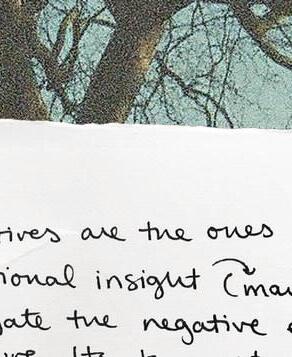 tives are the ones
ional insight (mau
gate the negative